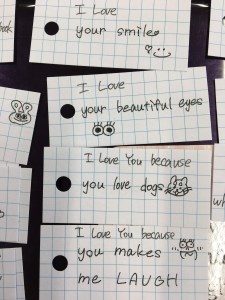 I Love
your smile
I Love
your beautiful eyes
I Love You because
you love dogs
I Love You because
you makes
me LAUGH